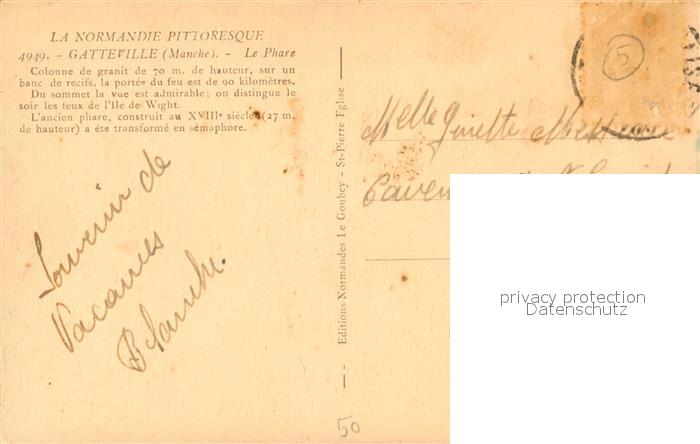 LA NORMANDIE PITTORESQUE
4949. - GATTEVILLE (Manche). - Le Phare
Colonne de granit de 70 m. de hauteur, sur un
banc de recifs, la portée du feu est de 90 kilomètres.
Du sommet la vue est admirable; on distingue le
soir les feux de l'Ile de Wight.
L'ancien phare, construit au XVIIIe siècle (27 m.
de hauteur) a éte transformé en sémaphore.
Souvenir de
Vacances
Blanche.
Editions Normandes Le Goubey - St-Pierre Eglise
5
Melle Ginette
50
privacy protection
Datenschutz